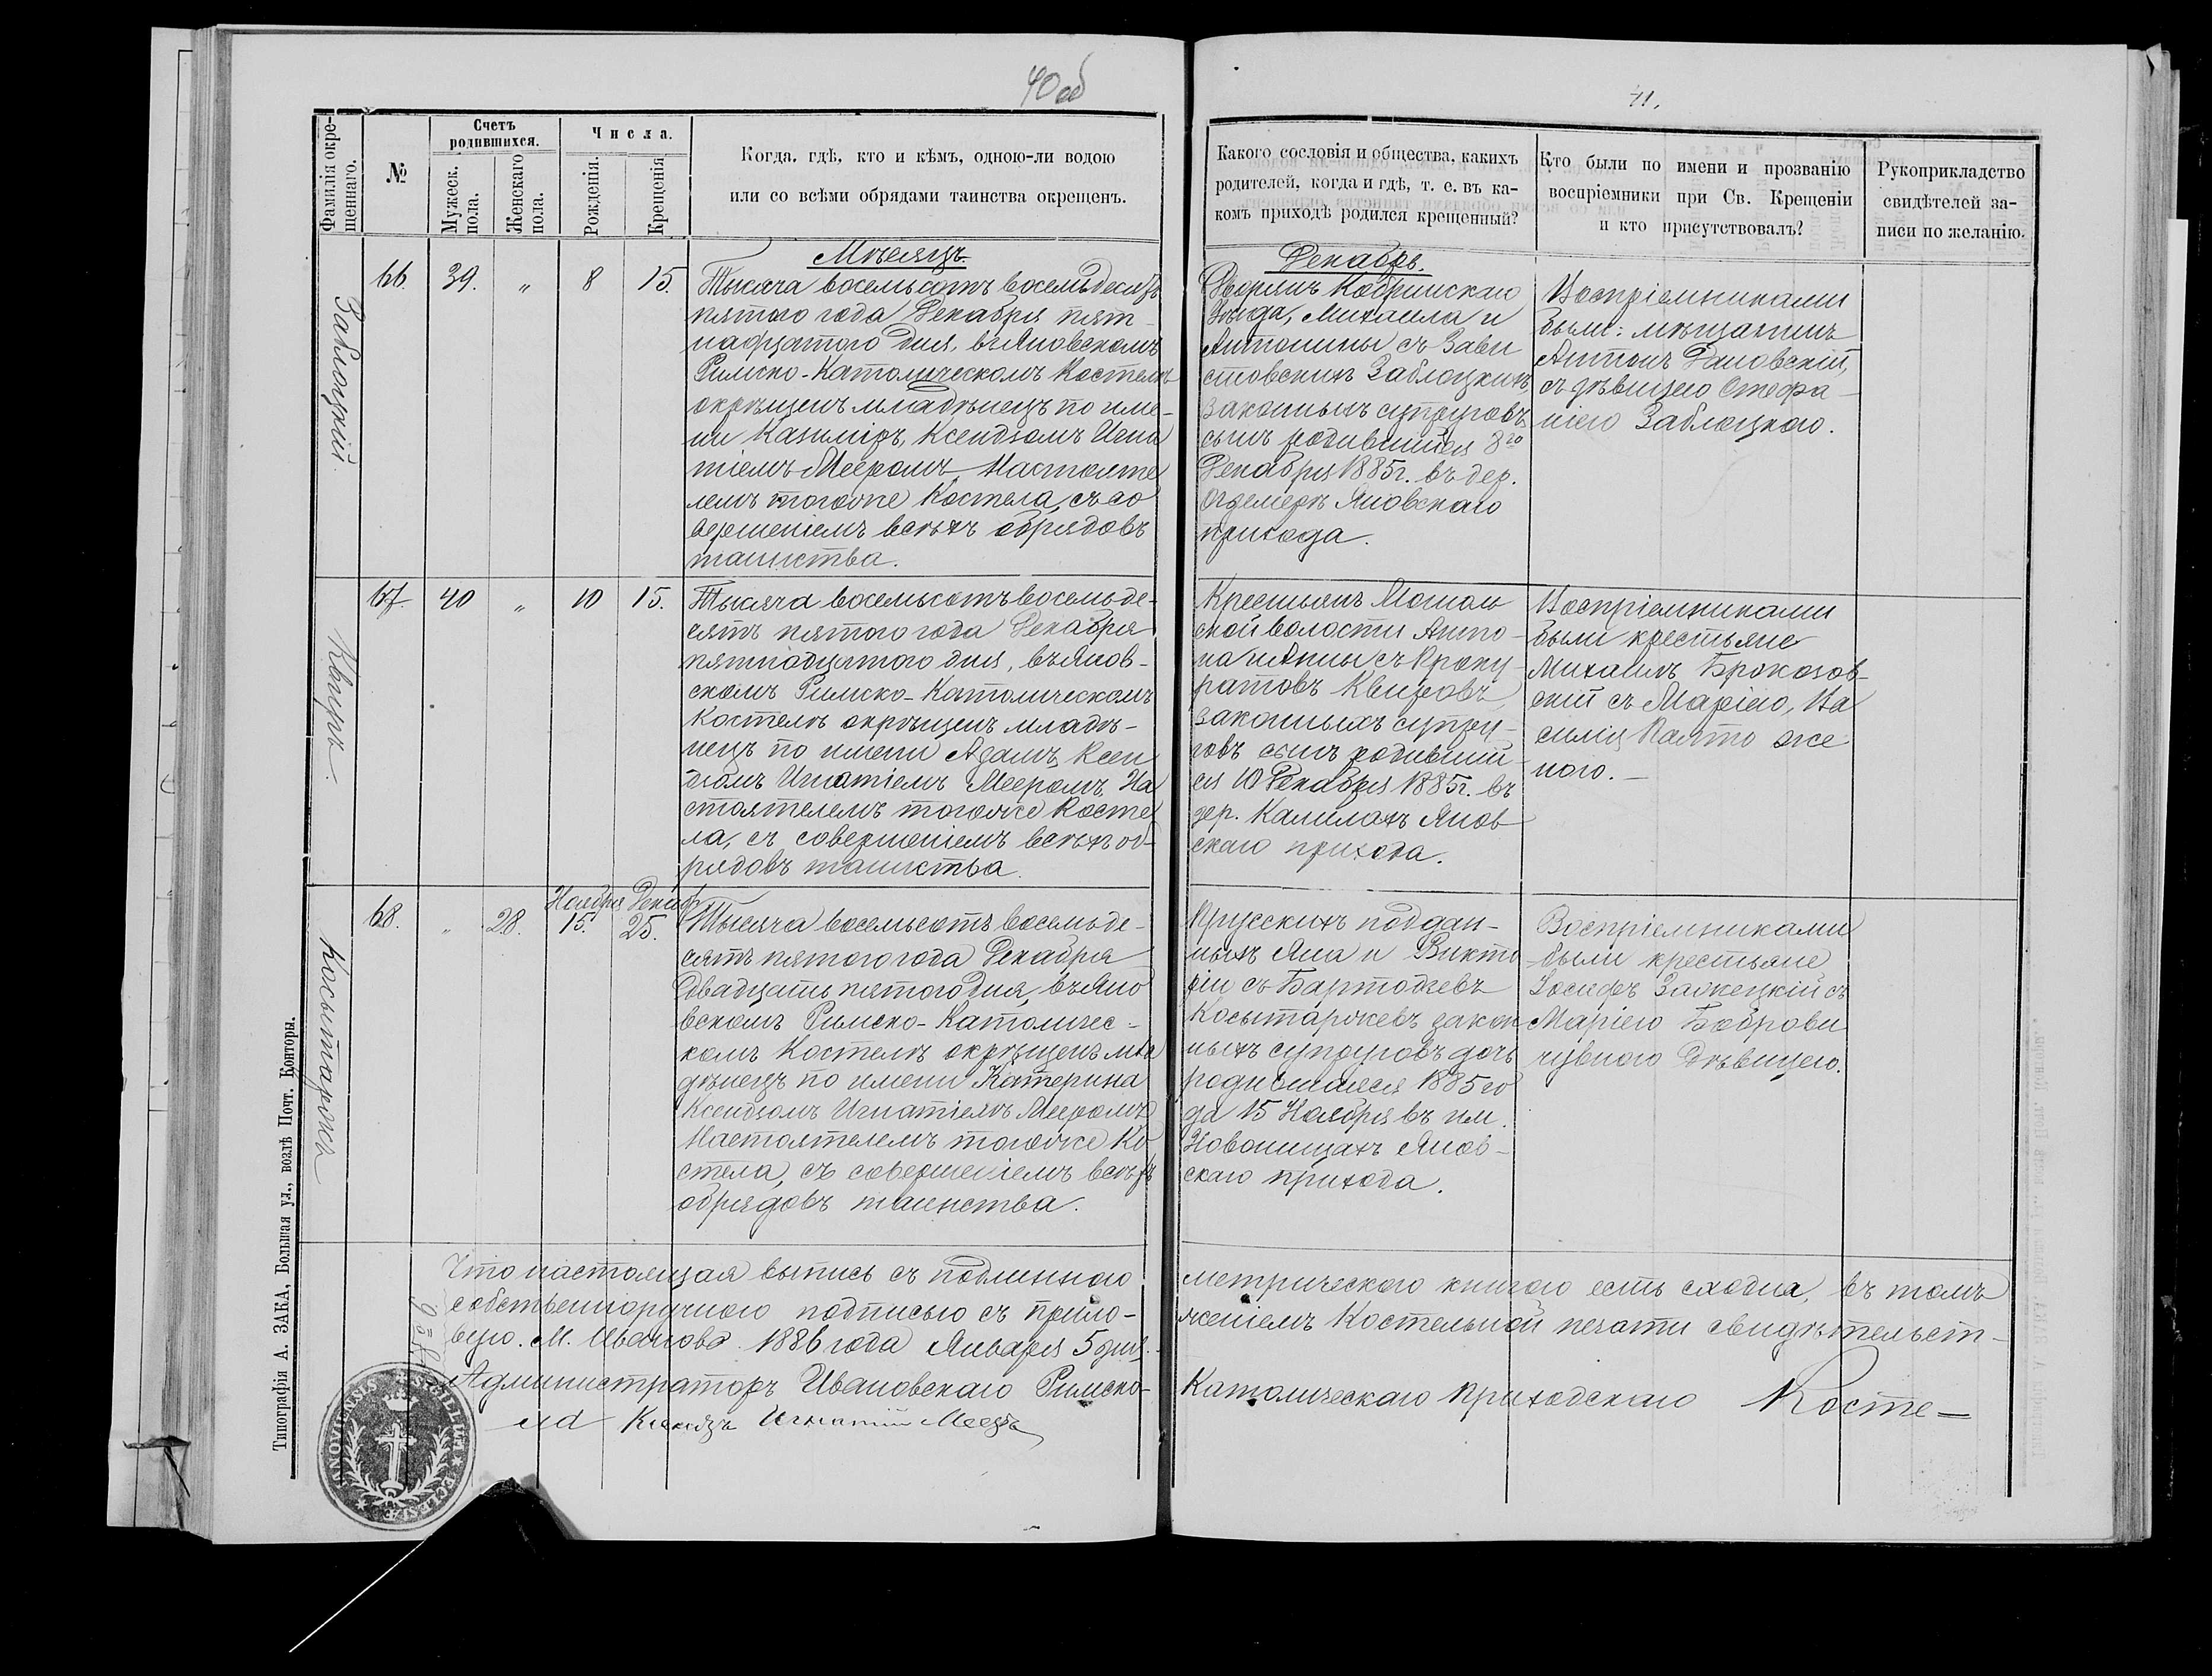 40 об
Фамилія окре-
щеннаго.
№
Счетъ
родившихся.
Мужеск.
пола.
Женскаго
пола.
Числа.
Рожденія.
Крещенія
Когда, гдѣ, кто и кѣмъ, одною-ли водою
или со всѣми обрядами таинства окрещенъ.
Мѣсяцъ
Заблоцкій.
66.
39.
"
8
15.
Тысяча восемьсотъ восемьдесятъ
пятого года Декабря пят-
надцатого дня, въ Яновскомъ
Римско-Католическомъ Костелѣ
окрещенъ младѣнецъ по име-
ни Казиміръ, Ксендзомъ Игна
тіемъ Мееромъ Настояте
лемъ тогоже Костела, съ со
вершеніемъ всѣхъ обрядовъ
таинства.
Квицъ.
67.
40
"
10
15.
Тысяча восемьсотъ восемьде-
сятъ пятого года Декабря
пятнадцатого дня, въ Янов-
скомъ Римско-Католическомъ
Костелѣ окрещенъ младѣ-
нецъ по имени Адамъ, Ксен
дзомъ Игнатіемъ Мееромъ, На
стоятелемъ тогоже Косте
ла, съ совершеніемъ всѣхъ об-
рядовъ таинства.
Косытаржея
68.
"
28.
Ноября
15.
Декаб.
25.
Тысяча восемьсотъ восемьде-
сятъ пятого года Декабря
Двадцать пятого дня, въ Яно
вскомъ Римско-Католичес-
комъ Костелѣ окрещенъ мла
дѣнецъ по имени Катерина
Ксендзомъ Игнатіемъ Мееромъ
Настоятелемъ тогоже Ко
стела, съ совершеніемъ всѣхъ
обрядовъ таинства.
Что настоящая выпись съ подлинною
собственноручною подписью съ прило-
вую. М. Иваново 1886 года Января 5 дня.
Администраторъ Ивановскаго Римско-
ла Ксендзъ Игнатій Мееръ
Типографія А. ЗАКА, Большая ул., возлѣ Почт. Конторы.
41.
Какого сословія и общества, какихъ
родителей, когда и гдѣ, т. е. въ ка-
комъ приходѣ родился крещенный?
Кто были по имени и прозванію
воспріемники при Св. Крещеніи
и кто присутствовалъ?
Рукоприкладство
свидѣтелей за-
писи по желанію.
Декабрь.
Дворянъ Кобринскаго
Уѣзда, Михаила и
Антонины съ Зави
стовскихъ Заблоцкихъ,
законныхъ супруговъ
сынъ родившійся 8го
Декабря 1885г. въ дер.
Огдемерѣ Яновскаго
прихода.
Воспріемниками
были: мѣщанинъ
Антонъ Дановскій,
съ дѣвицею Стефа-
ніею Заблоцкою.
Крестьянъ Мотоль
ской волости Анто-
на и Анны съ Проку-
ратовъ Квицовъ,
законныхъ супру-
говъ сынъ родивший-
ся 10 Декабря 1885г. въ
дер. Калилахъ Янов
скаго прихода.
Воспріемниками
были крестьяне
Михаилъ
скій съ Маріею, Ва
силія же
ною.
Прусскихъ поддан-
ныхъ Яна и Викто
ріи съ Бартодзевъ
Косытаржевъ закон
ныхъ супруговъ дочь
родившаяся 1885 го
да 15 Ноября въ им.
Новолищахъ Янов-
скаго прихода.
Воспріемниками
были крестьяне
Іосифъ съ
Маріею Боброви
чувною Дѣвицею.
метрическою книгою есть сходна, въ томъ
женіемъ Костельной печати свидѣтельст-
Католическаго приходскаго Косте-